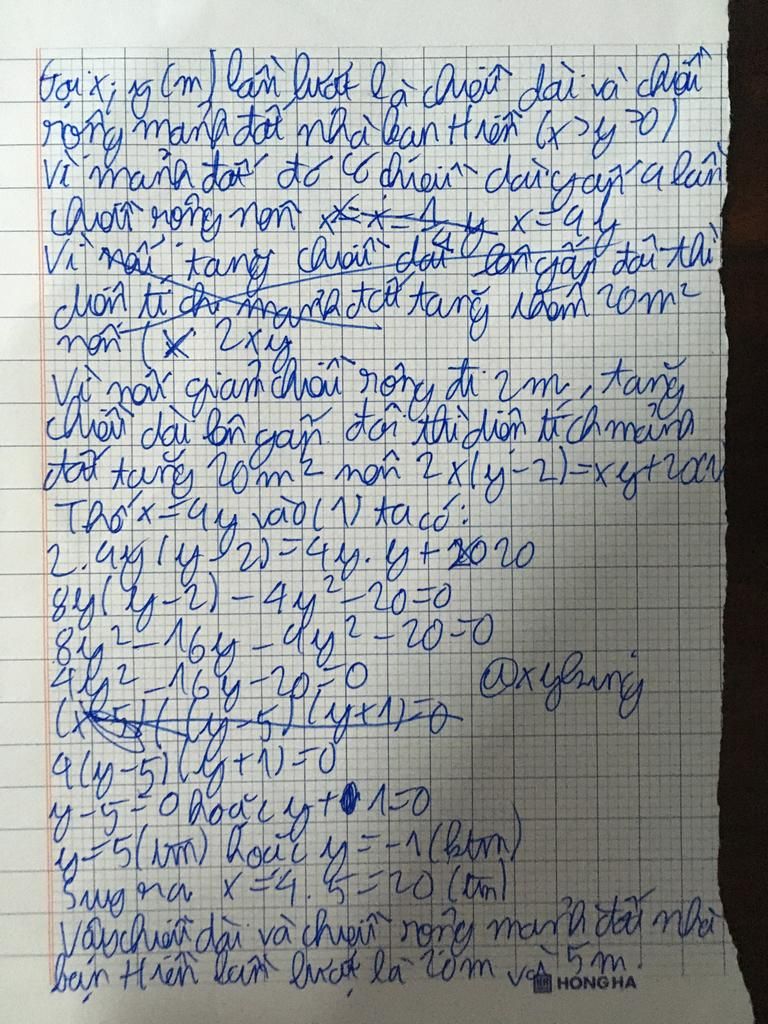 Gọi x; y (m) lần lượt là chiều dài và chiều
rộng mảnh đất nhà bạn Hiền (x>y>0)
Vì mảnh đất đó có chiều dài gấp 4 lần
chiều rộng nên x = 4y
Vì nếu tăng chiều dài lên gấp đôi thì
diện tích mảnh đất tăng thêm 20m²
nên (x 2xy
Vì nếu giảm chiều rộng đi 2m, tăng
chiều dài lên gấp đôi thì diện tích mảnh
đất tăng 20m² nên 2x(y-2)=xy+20(1)
Thế x=4y vào (1) ta có:
2.4y(y-2)=4y.y+20
8y(y-2)-4y²-20=0
8y²-16y-4y²-20=0
4y²-16y-20=0
@xyhung
(y-5)(y+1)=0
4(y-5)(y+1)=0
y-5=0 hoặc y+1=0
y=5(tm) hoặc y=-1(ktm)
Suy ra x=4.5=20(tm)
Vậy chiều dài và chiều rộng mảnh đất nhà
bạn Hiền lần lượt là 20m và 5m.
HONG HA